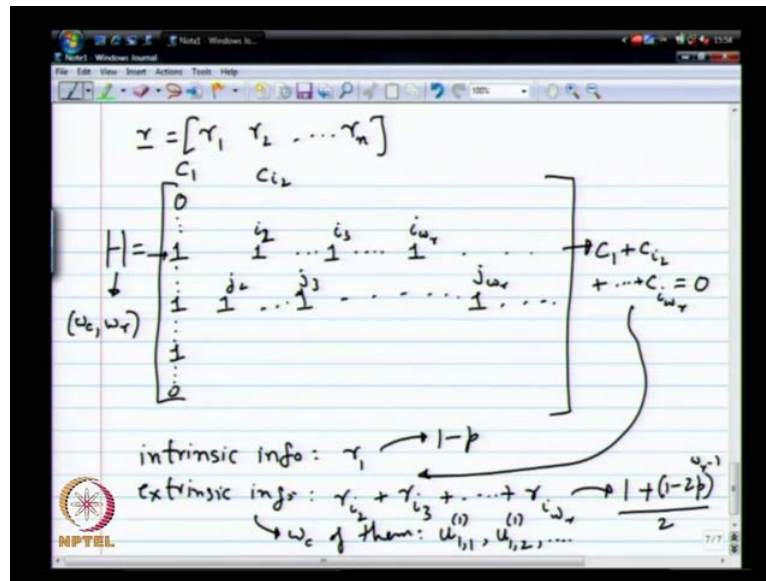 Note1 - Windows Jo...
15:54
Note1 - Windows Journal
File Edit View Insert Actions Tools Help
100%
r = [r₁ r₂ .... rₙ]
c₁ c_{i₂}
0
⋮
H = → 1 1^{i₂} ... 1^{i₃} .... 1^{i_{w_r}} . . . . → c₁ + c_{i₂}
+ ... + c_{i_{w_r}} = 0
⋮
1 1^{j₂} ... 1^{j₃} . . . . . . 1^{j_{w_r}} ....
(w_c, w_r)
⋮
1
⋮
0
intrinsic info: r₁ → 1-p
extrinsic info: r_{i₂} + r_{i₃} + .... + r_{i_{w_r}} → (1 + (1-2p)^{w_r-1})/2
↳ w_c of them: u_{1,1}^{(1)}, u_{1,2}^{(1)}, ....
7/7
NPTEL